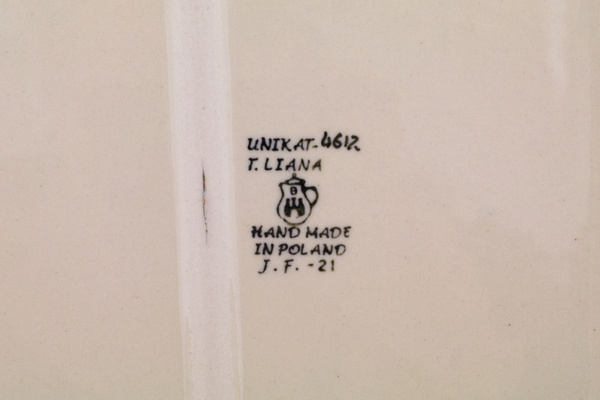 UNIKAT-4617
T. LIANA
B
HAND MADE
IN POLAND
J.F. -21